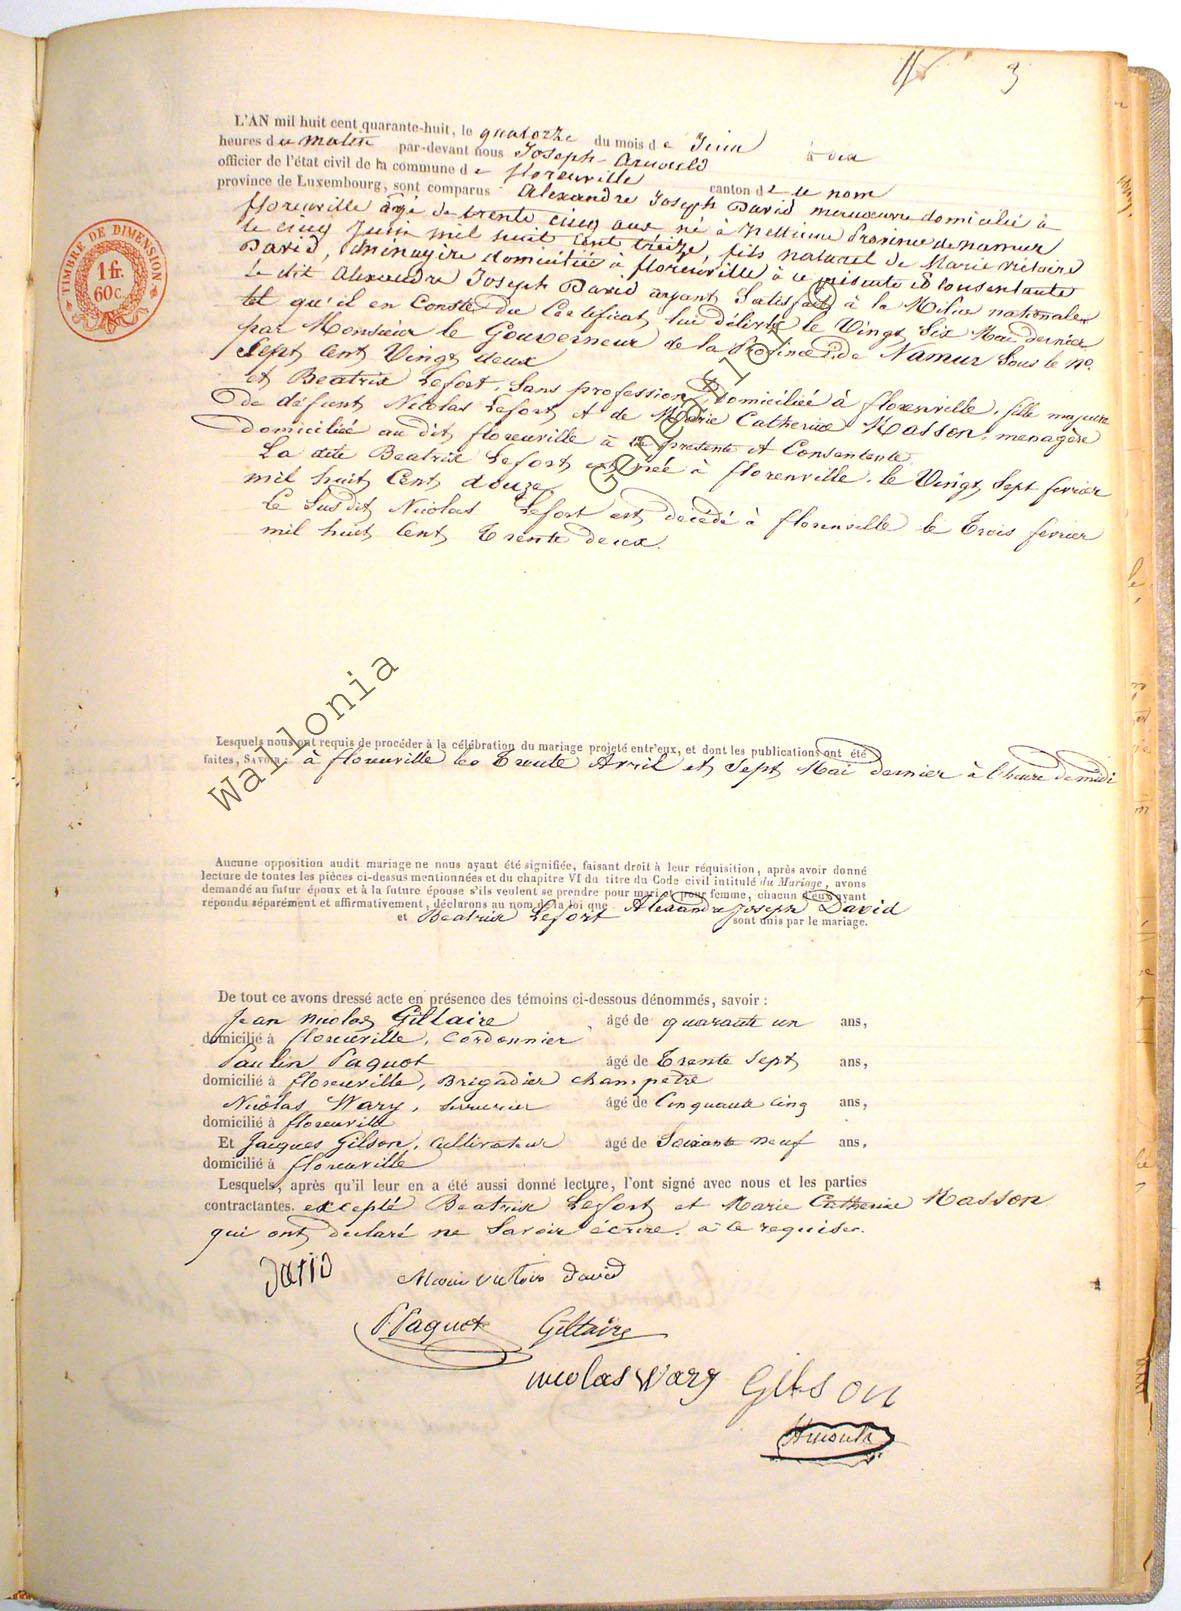 3
L'AN mil huit cent quarante-huit, le quatorze du mois de Juin à dix
heures du matin par-devant nous Joseph Arnould
officier de l'état civil de la commune de florenville canton de ce nom
province de Luxembourg, sont comparus Alexandre Joseph David manœuvre domicilié à
florenville âgé de trente cinq ans né à Province de namur
le cinq Juin mil huit cent treize, fils naturel de Marie Victoire
David, ménagère domiciliée à florenville à ce présente et consentante
Le dit Alexandre Joseph David ayant Satisfait à la Milice nationale
tel qu'il en Conste du Certificat lui délivré le Vingt Six Mai dernier
par Monsieur le Gouverneur de la Province de Namur Sous le no.
Sept cent Vingt deux
et Beatrix Lefort, Sans profession, Domiciliée à florenville, fille majeure
de défunt Nicolas Lefort et de Marie Catherine Masson, menagère
domiciliée au dit florenville à ce présente et Consentente
La dite Beatrix Lefort est née à florenville, le Vingt Sept fevrier
mil huit Cent douze
Le Susdit Nicolas Lefort est décédé à florenville le Trois fevrier
mil huit Cent Trente deux.
TIMBRE DE DIMENSION
1 fr.
60 c.
Geneanet.org
Wallonia
Lesquels nous ont requis de procéder à la célébration du mariage projeté entr'eux, et dont les publications ont été
faites, SAVOIR: à florenville les Trente Avril et Sept Mai dernier à l'heure de midi
Aucune opposition audit mariage ne nous ayant été signifiée, faisant droit à leur réquisition, après avoir donné
lecture de toutes les pièces ci-dessus mentionnées et du chapitre VI du titre du Code civil intitulé du Mariage, avons
demandé au futur époux et à la future épouse s'ils veulent se prendre pour mari et pour femme, chacun d'eux ayant
répondu séparément et affirmativement, déclarons au nom de la loi que Alexandre Joseph David
et Beatrix Lefort sont unis par le mariage.
De tout ce avons dressé acte en présence des témoins ci-dessous dénommés, savoir :
Jean Nicolas Giltaire âgé de quarante un ans,
domicilié à florenville, Cordonnier
Paulin Paquot âgé de Trente Sept ans,
domicilié à florenville, Brigadier champetre
Nicolas Wary, serrurier âgé de Cinquante Cinq ans,
domicilié à florenville
Et Jacques Gilson, Cultivateur âgé de Soixante neuf ans,
domicilié à florenville
Lesquels, après qu'il leur en a été aussi donné lecture, l'ont signé avec nous et les parties
contractantes. excepté Beatrix Lefort et Marie Catherine Masson
qui ont declaré ne Savoir écrire. à ce requises.
David Marie victoire david
P Paquot Giltaire
nicolas Wary Gilson
Arnould